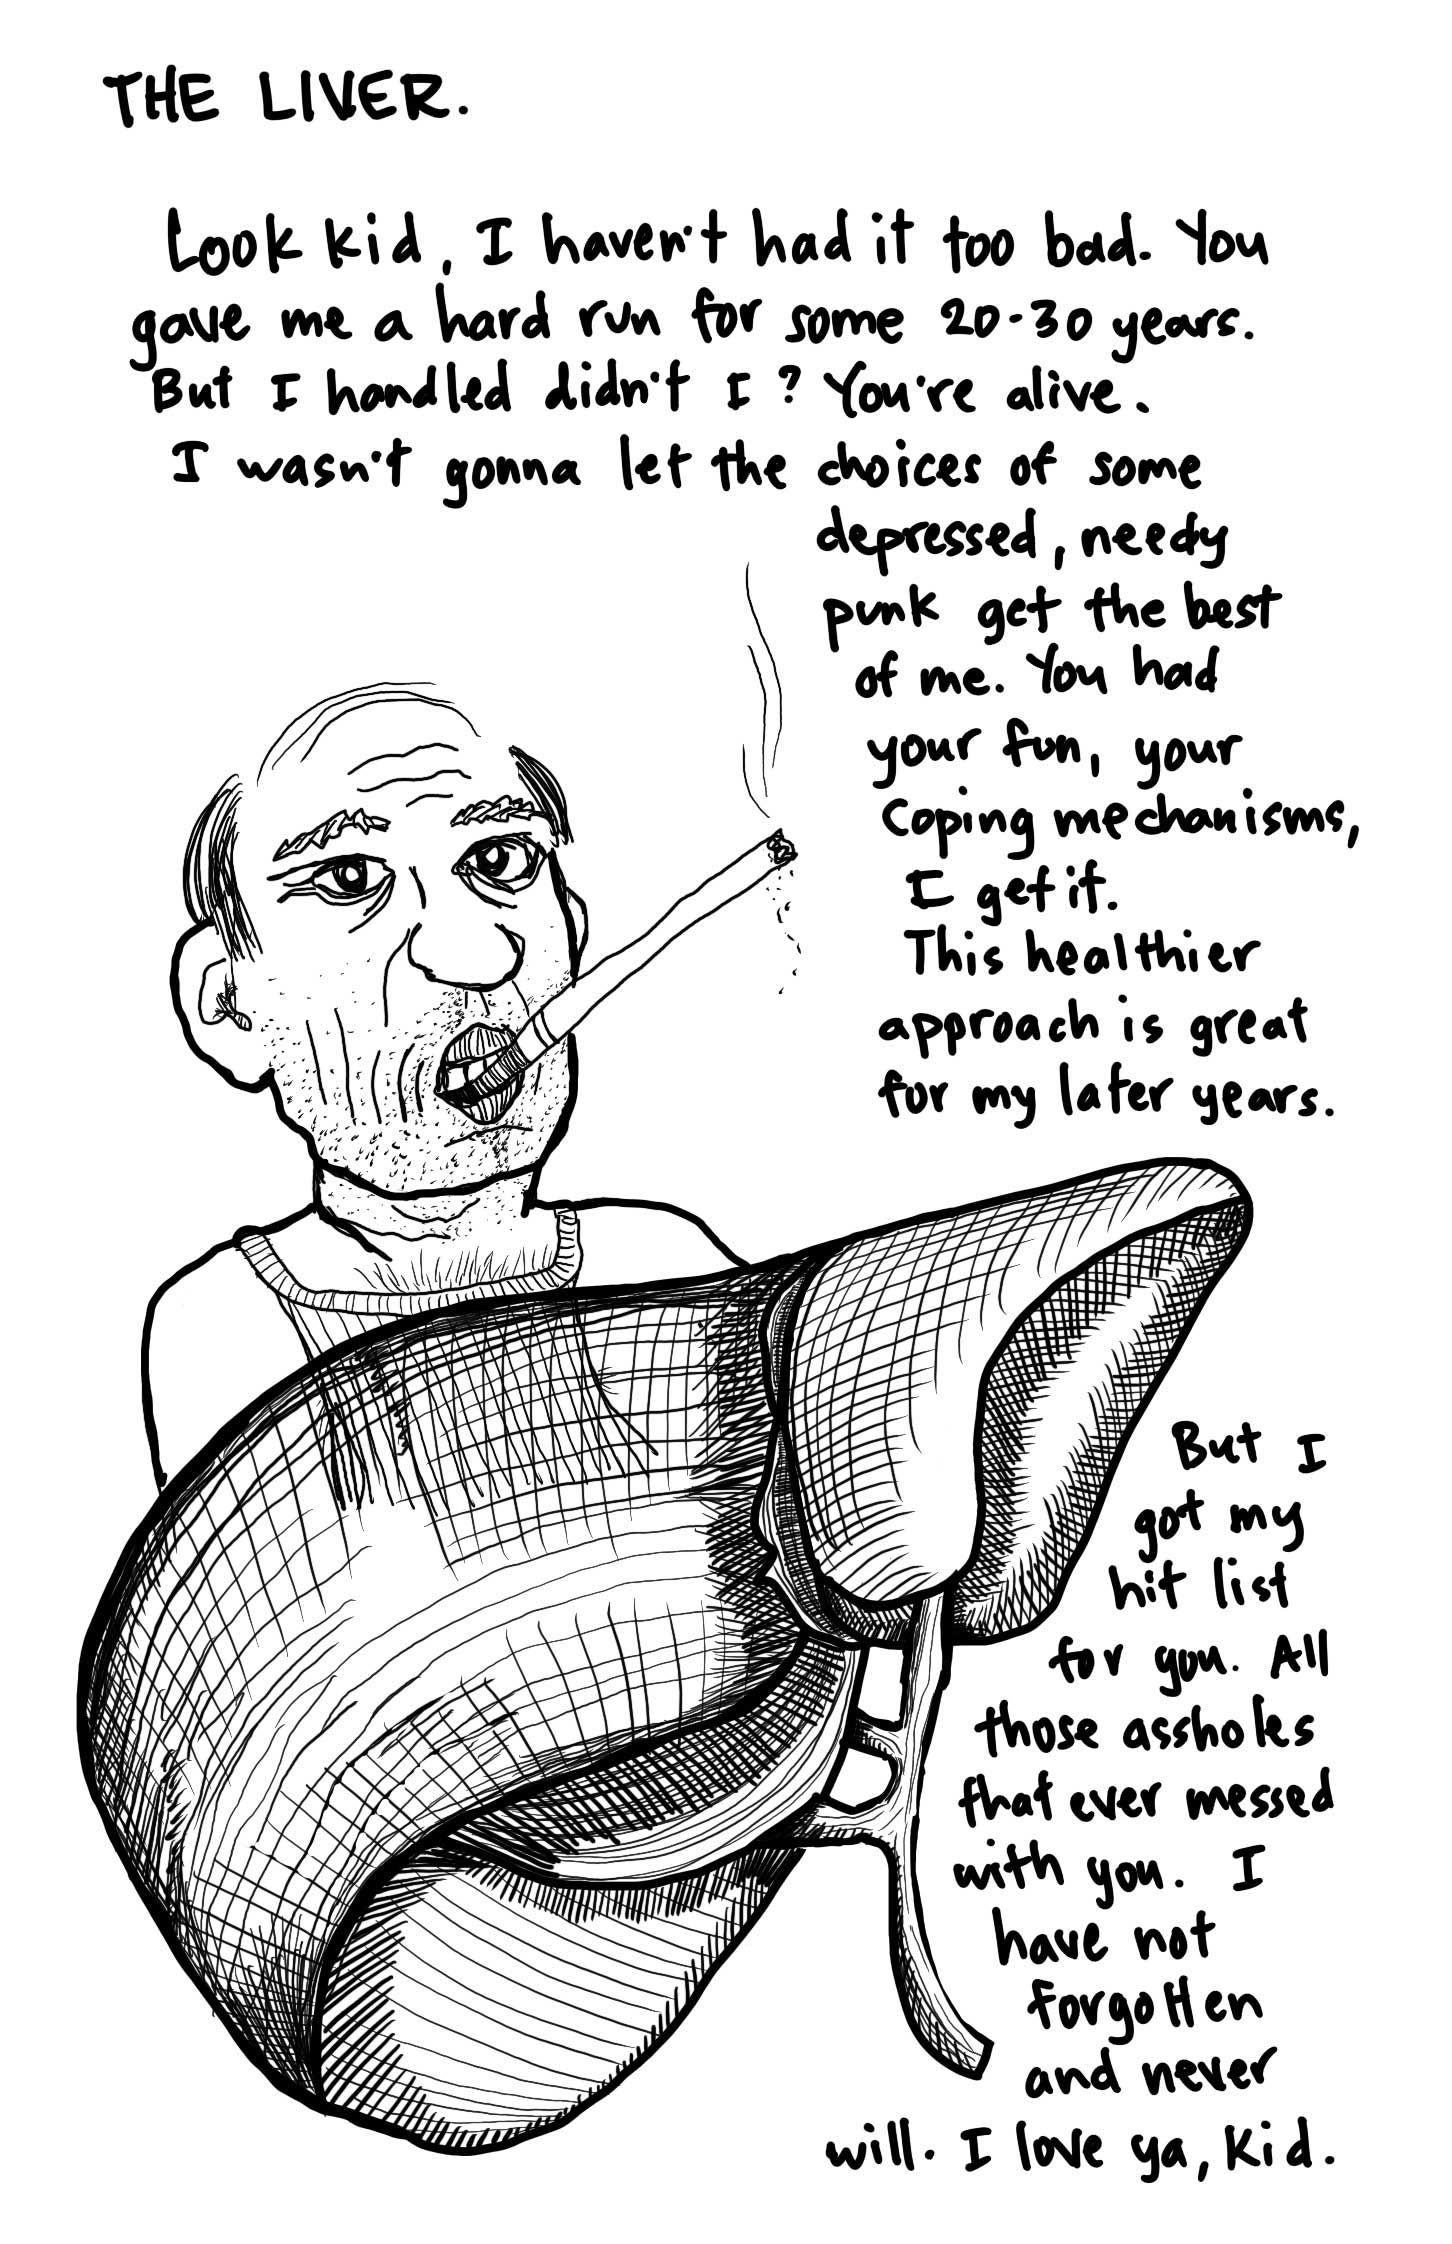 THE LIVER.
Look kid, I haven't had it too bad. You
gave me a hard run for some 20-30 years.
But I handled didn't I? You're alive.
I wasn't gonna let the choices of some
depressed, needy
punk get the best
of me. You had
your fun, your
coping mechanisms,
I get it.
This healthier
approach is great
for my later years.
But I
got my
hit list
for you. All
those assholes
that ever messed
with you. I
have not
forgotten
and never
will. I love ya, kid.